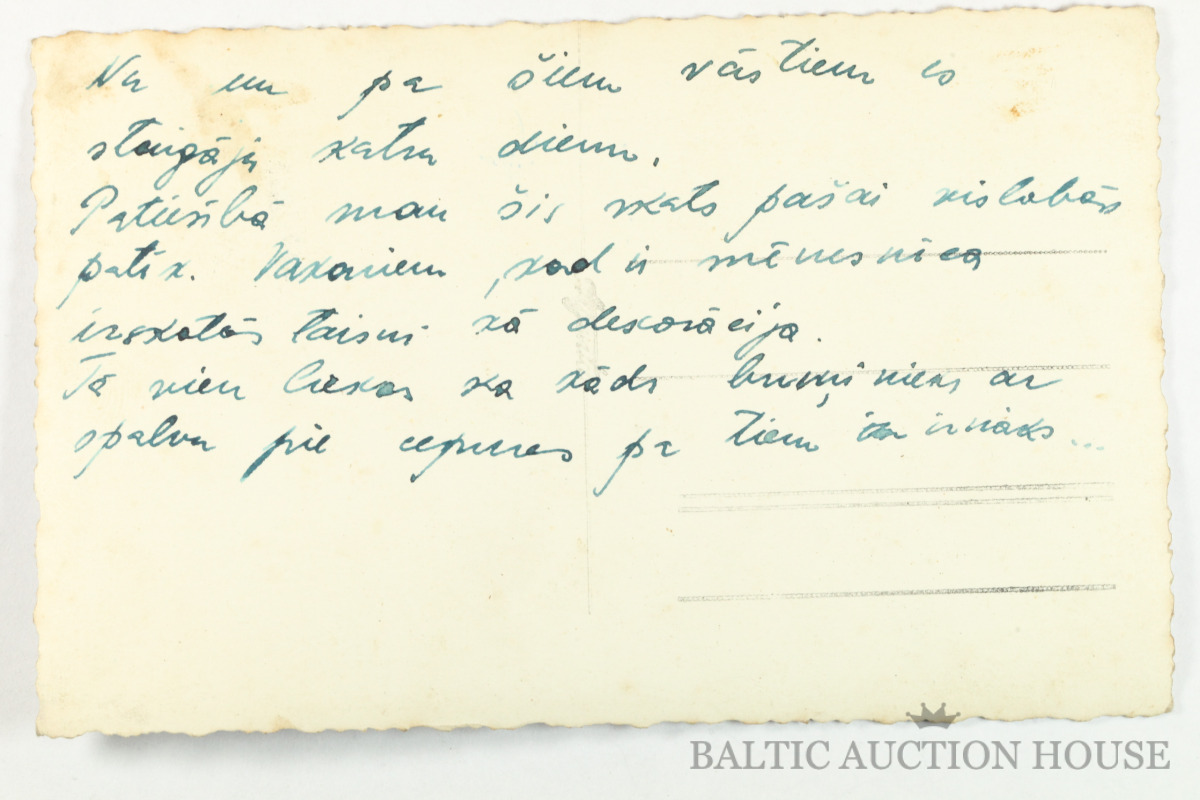 Nu un pa šiem vāstiem es
staigāju katru dienu.
Patiesībā man šis skats pašai vislabāk
patīk. Vakariem, kad ir mēnesnica
izskatās taisni kā dekorācija.
Tā vien liekas ka kāds bruņinieks ar
spalvu pie cepures pa tiem iznāks...
BALTIC AUCTION HOUSE